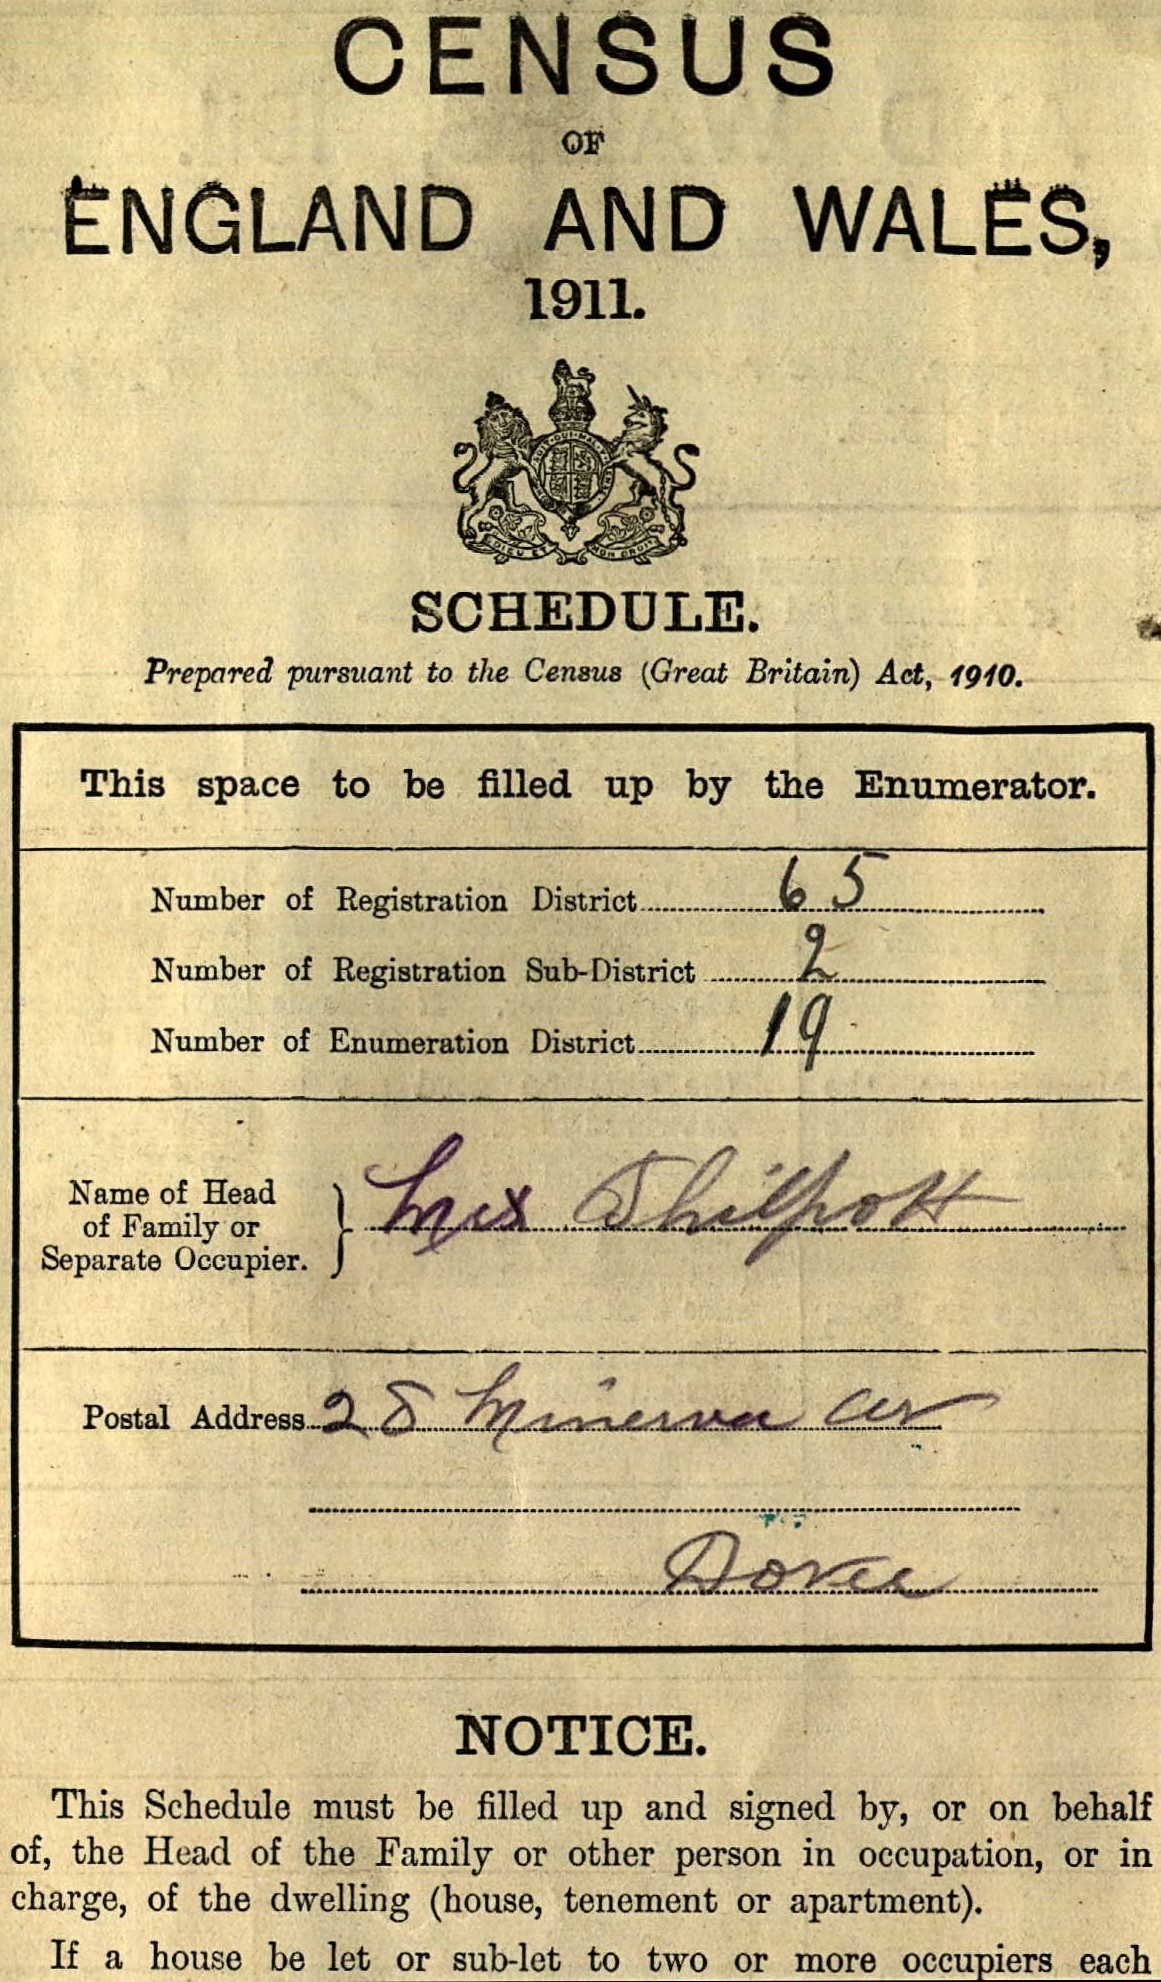 CENSUS
OF
ENGLAND AND WALES,
1911.
HONI·SOIT·QUI·MAL·Y·PENSE
DIEU ET MON DROIT
SCHEDULE.
Prepared pursuant to the Census (Great Britain) Act, 1910.
This space to be filled up by the Enumerator.
Number of Registration District 65
Number of Registration Sub-District 2
Number of Enumeration District 19
Name of Head
of Family or
Separate Occupier. } Mrs Philpott
Postal Address 28 Minerva Av
Dover
NOTICE.
This Schedule must be filled up and signed by, or on behalf
of, the Head of the Family or other person in occupation, or in
charge, of the dwelling (house, tenement or apartment).
If a house be let or sub-let to two or more occupiers each